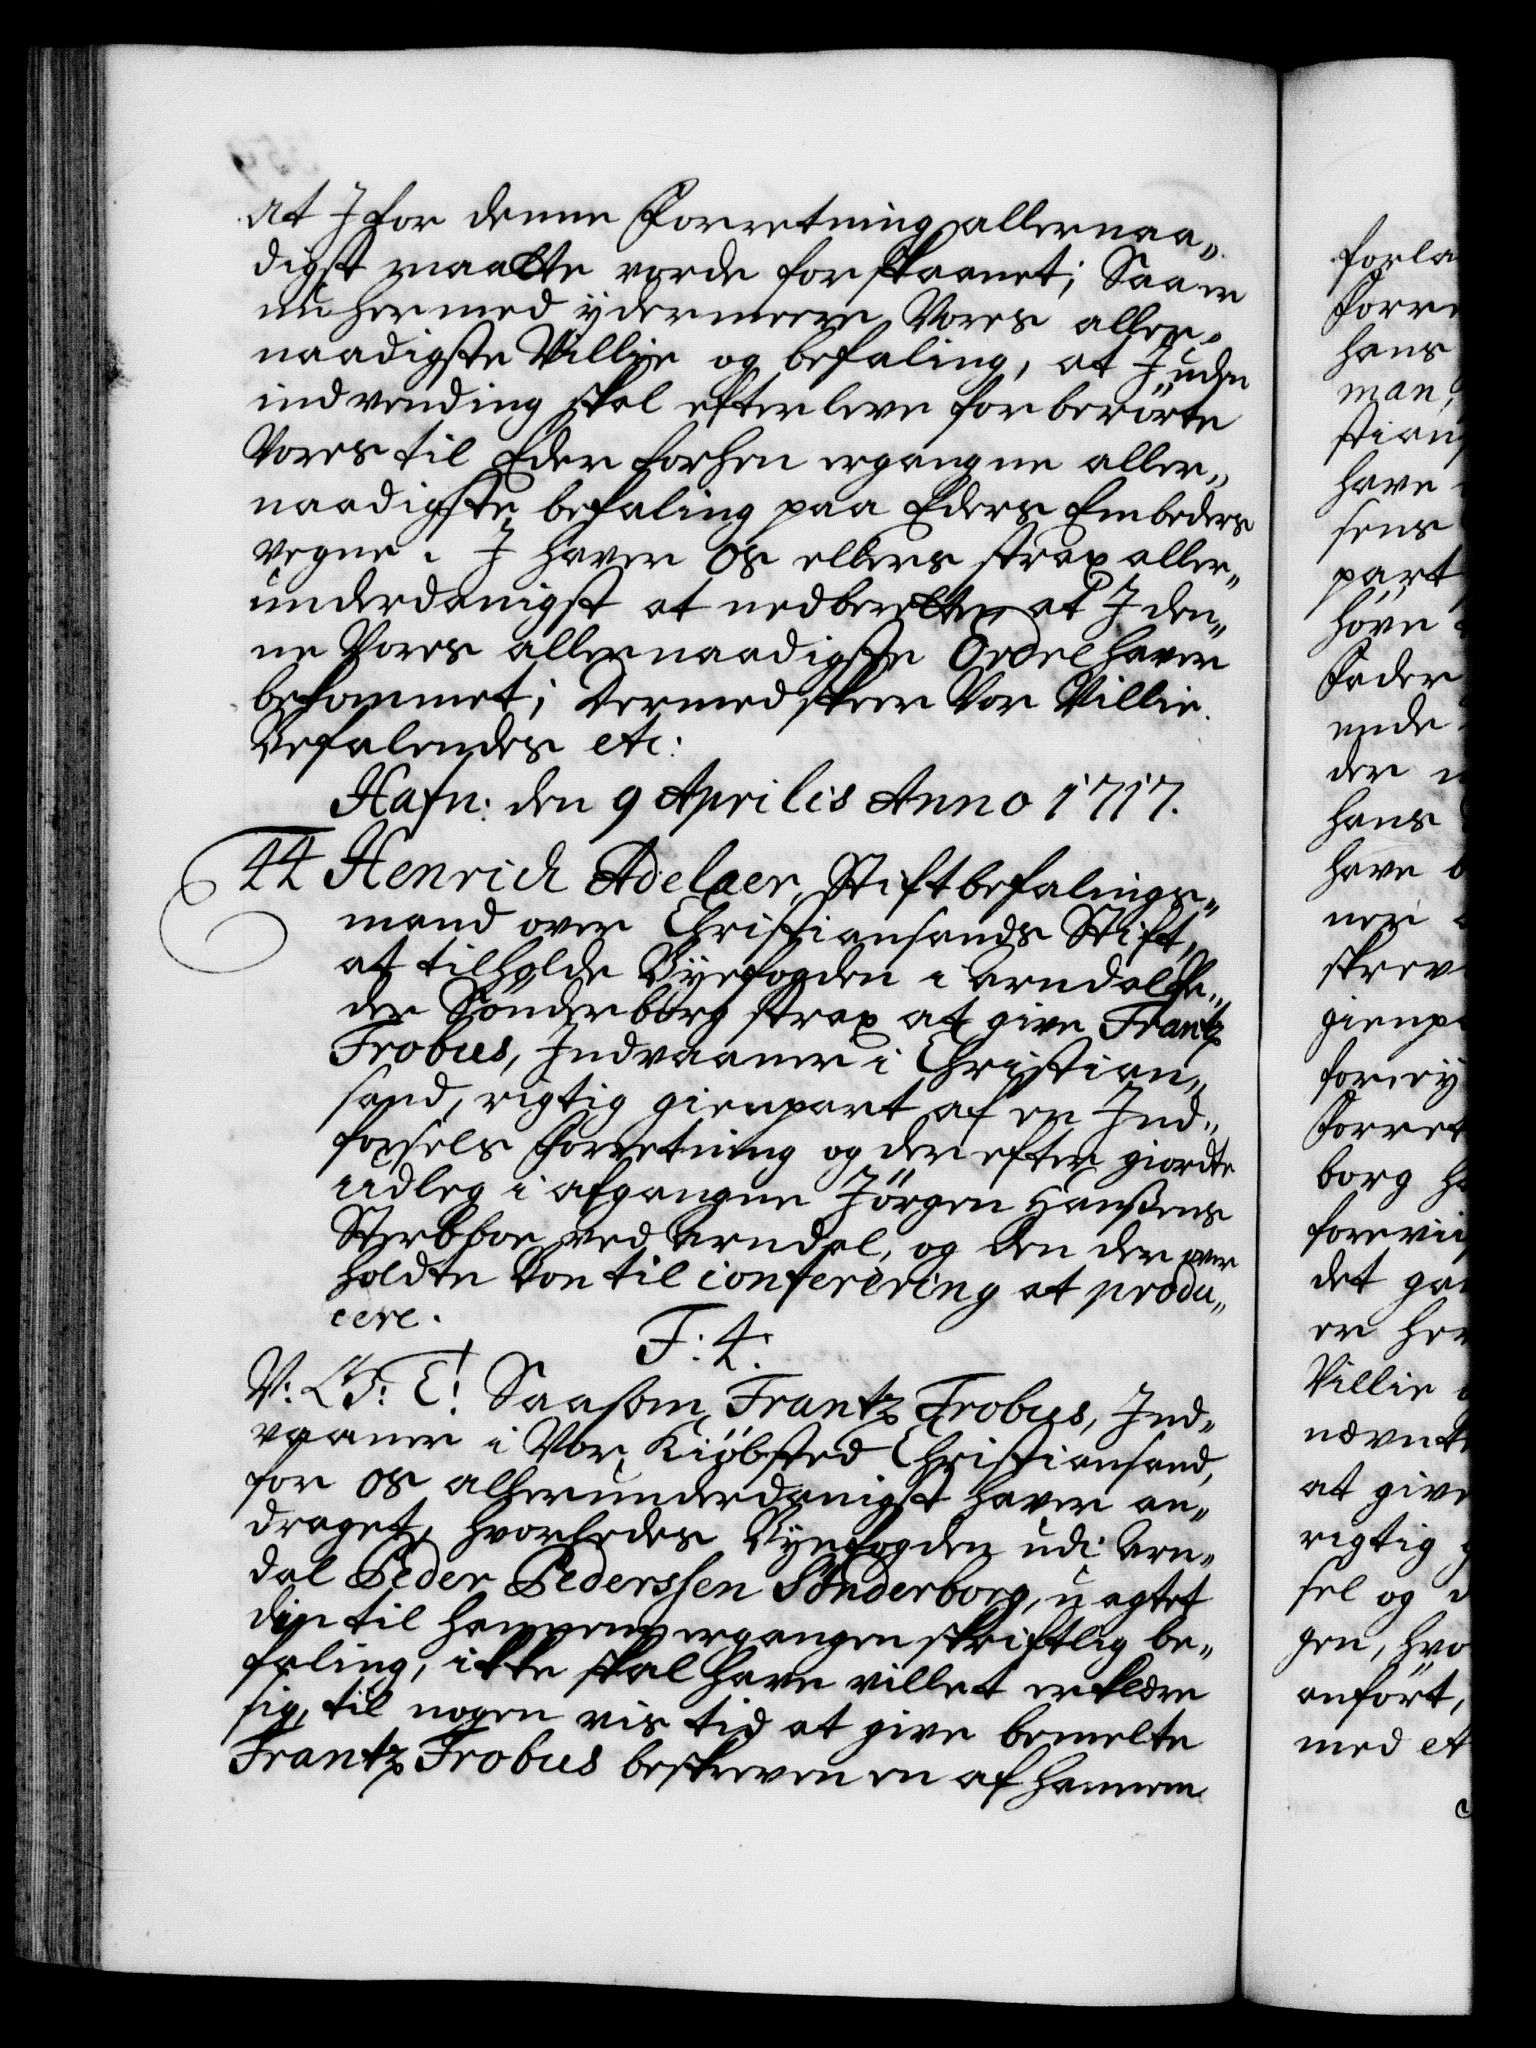 at I for denne Forretning allernaa„
digst maatte vorde forskaanet; Saa er
nu hermed ydermeere Vores aller„
naadigste Villie og befaling, at I uden
indvending skal efterleve forberörte
Vores til Eder forhen ergangne aller„
naadigste befaling paa Eders Embeders
vegne. I haver os ellers strax aller„
underdanigst at
at I den„
ne Vores allernaadigste Ordre haver
bekommet; Dermed skeer Vor Villie.
Befalendes etc:
Hafn: den 9 Aprilis Anno 1717.
44 Henrich Adelaer, Stiftbefalings„
mand over Christiansands Stift,
at tilholde Byefogden i Arndal Pe„
der Sönderborg strax at give Frantz
Trobus, Indvaaner i Christian„
sand, rigtig gienpart af en Ind„
försels Forretning og derefter giordte
Udleg i afgangne Jörgen Hanssens
Sterbboe ved Arndal, og den der over
holdte
til conferering at produ„
cere.
F: 4:
V: G: T! Saasom Frantz Trobus, Ind„
vaaner i Vor Kiöbsted Christiansand,
for os allerunderdanigst haver an„
draget, hvorledes Byefogden udi Arn„
dal Peder Pederssen Sönderborg, uagtet
din til hannem ergangen skriftlig be„
faling, ikke skal have villet erklære
sig, til nogen vis tid at give bemelte
Frantz Trobus beskreven en af hannem
forla
Forre
hans
man,
stian
have
sens
part
höre
Peder
ende
der
hans
have
ner
skrev
gienpa
forey
Forret
borg ha
foreviis
det gan
er her
Villie
nevnte
at give
rigtig
sel og
gen, hvo
anfört,
med et